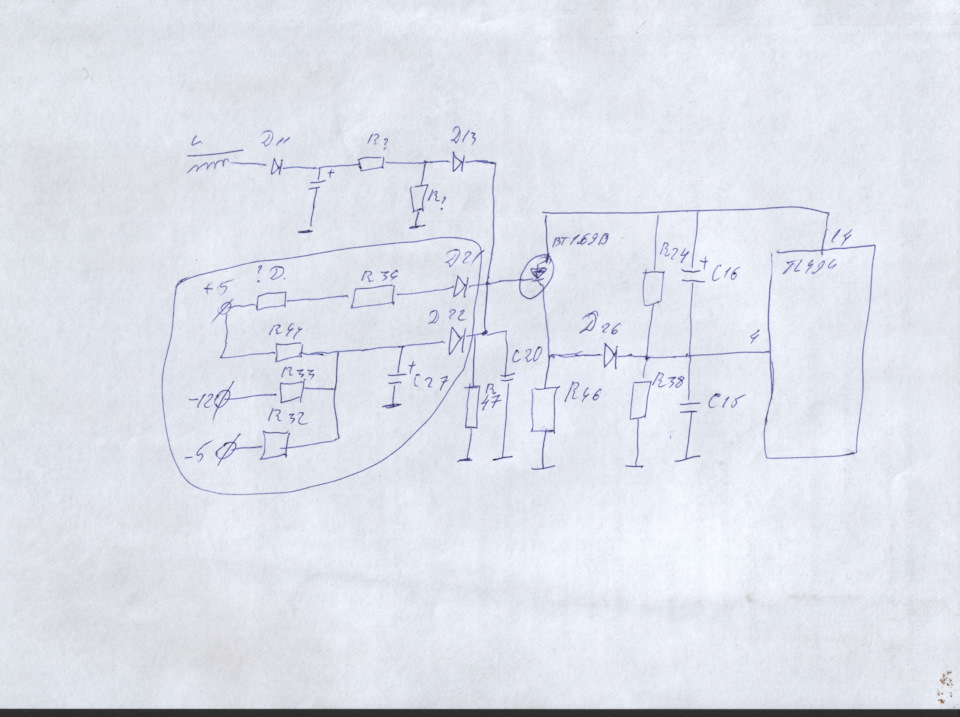 L
D11
R?
D13
+
R?
BT169B
14
TL494
D21
R24
+
C16
+5
R34
D22
D26
4
R44
C20
R33
+
C27
R
47
R46
R38
C15
-12
R32
-5